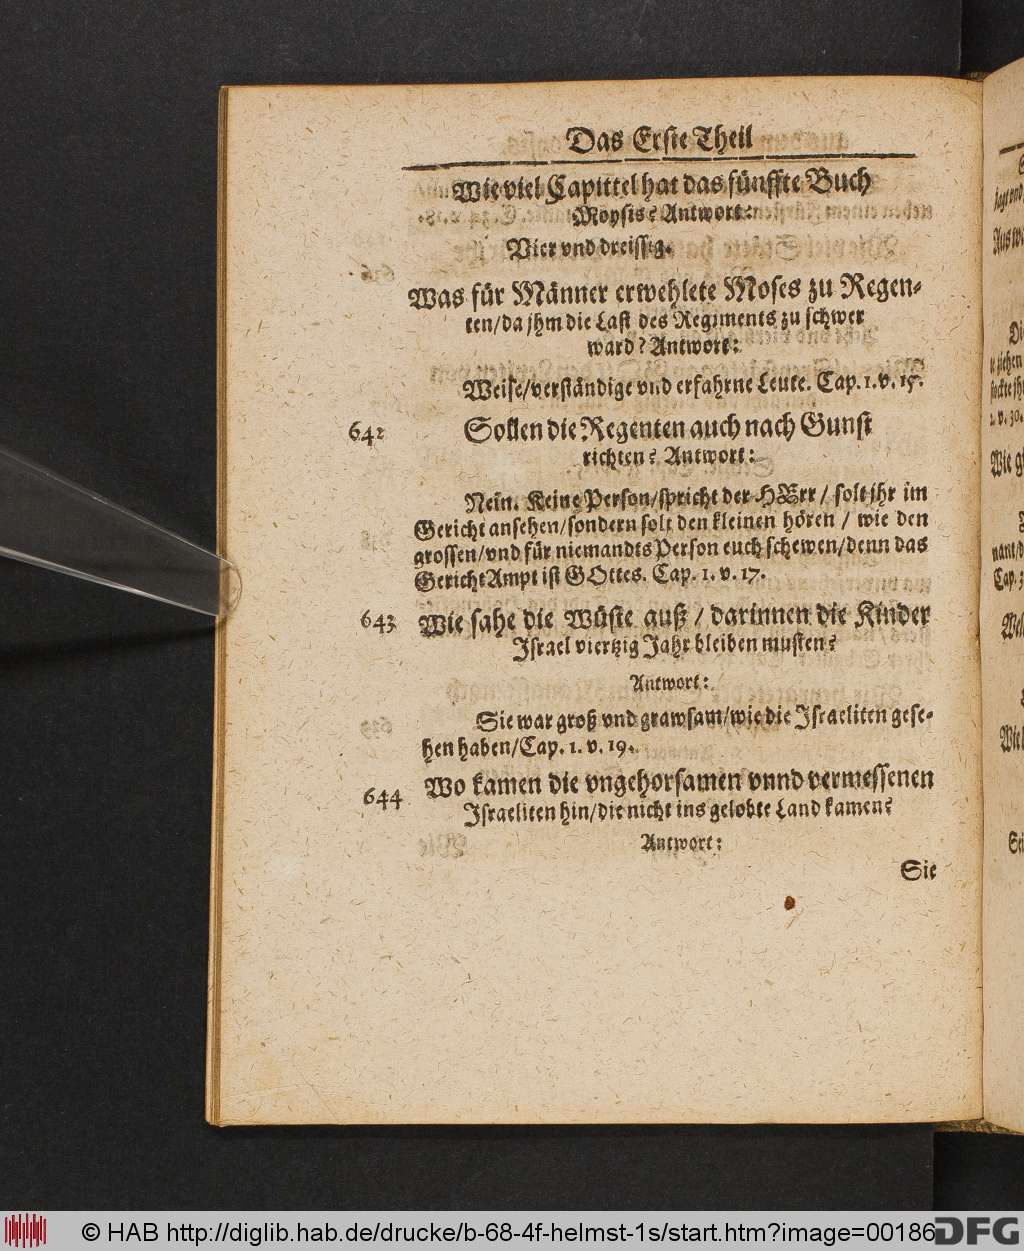 Das Erste Theil
Wie viel Capittel hat das fünffte Buch
Moysis? Antwort:
Vier vnd dreissig.
Was für Männer erwehlete Moses zu Regen-
ten/da jhm die Last des Regiments zu schwer
ward? Antwort:
Weise/verständige vnd erfahrne Leute. Cap. 1. v. 15.
642 Sollen die Regenten auch nach Gunst
richten? Antwort:
Nein. Keine Person/spricht der HErr / solt jhr im
Gericht ansehen/sondern solt den kleinen hören / wie den
grossen/vnd für niemandts Person euch schewen/denn das
Gericht Ampt ist GOttes. Cap. 1. v. 17.
643 Wie sahe die Wüste auß / darinnen die Kinder
Israel viertzig Jahr bleiben musten?
Antwort:
Sie war groß vnd grawsam/wie die Israeliten gese-
hen haben/Cap. 1. v. 19.
644 Wo kamen die vngehorsamen vnnd vermessenen
Israeliten hin/die nicht ins gelobte Land kamen?
Antwort:
Sie
© HAB http://diglib.hab.de/drucke/b-68-4f-helmst-1s/start.htm?image=00186
DFG